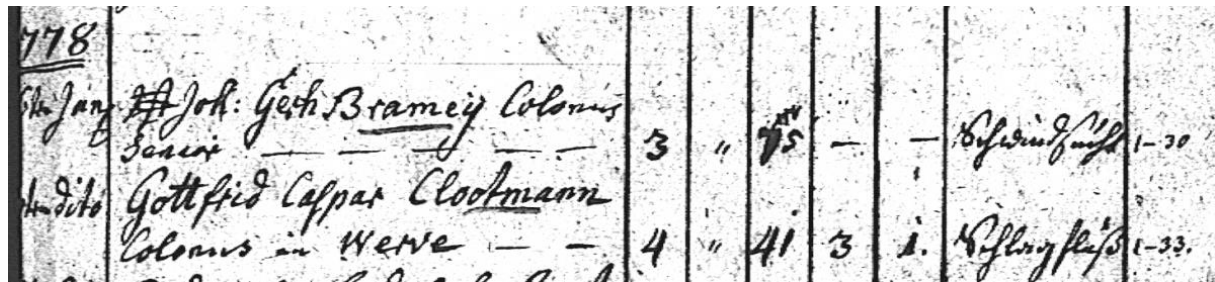 778
Janr Joh: Gerh Bramey Colonus
Senior — — — — — 3 " 75 — — Schwindsucht 1-30
dito Gottfrid Caspar Clootmann
Colonus in Werve — — 4 " 41 3 1. Schlagfluß 1-33.